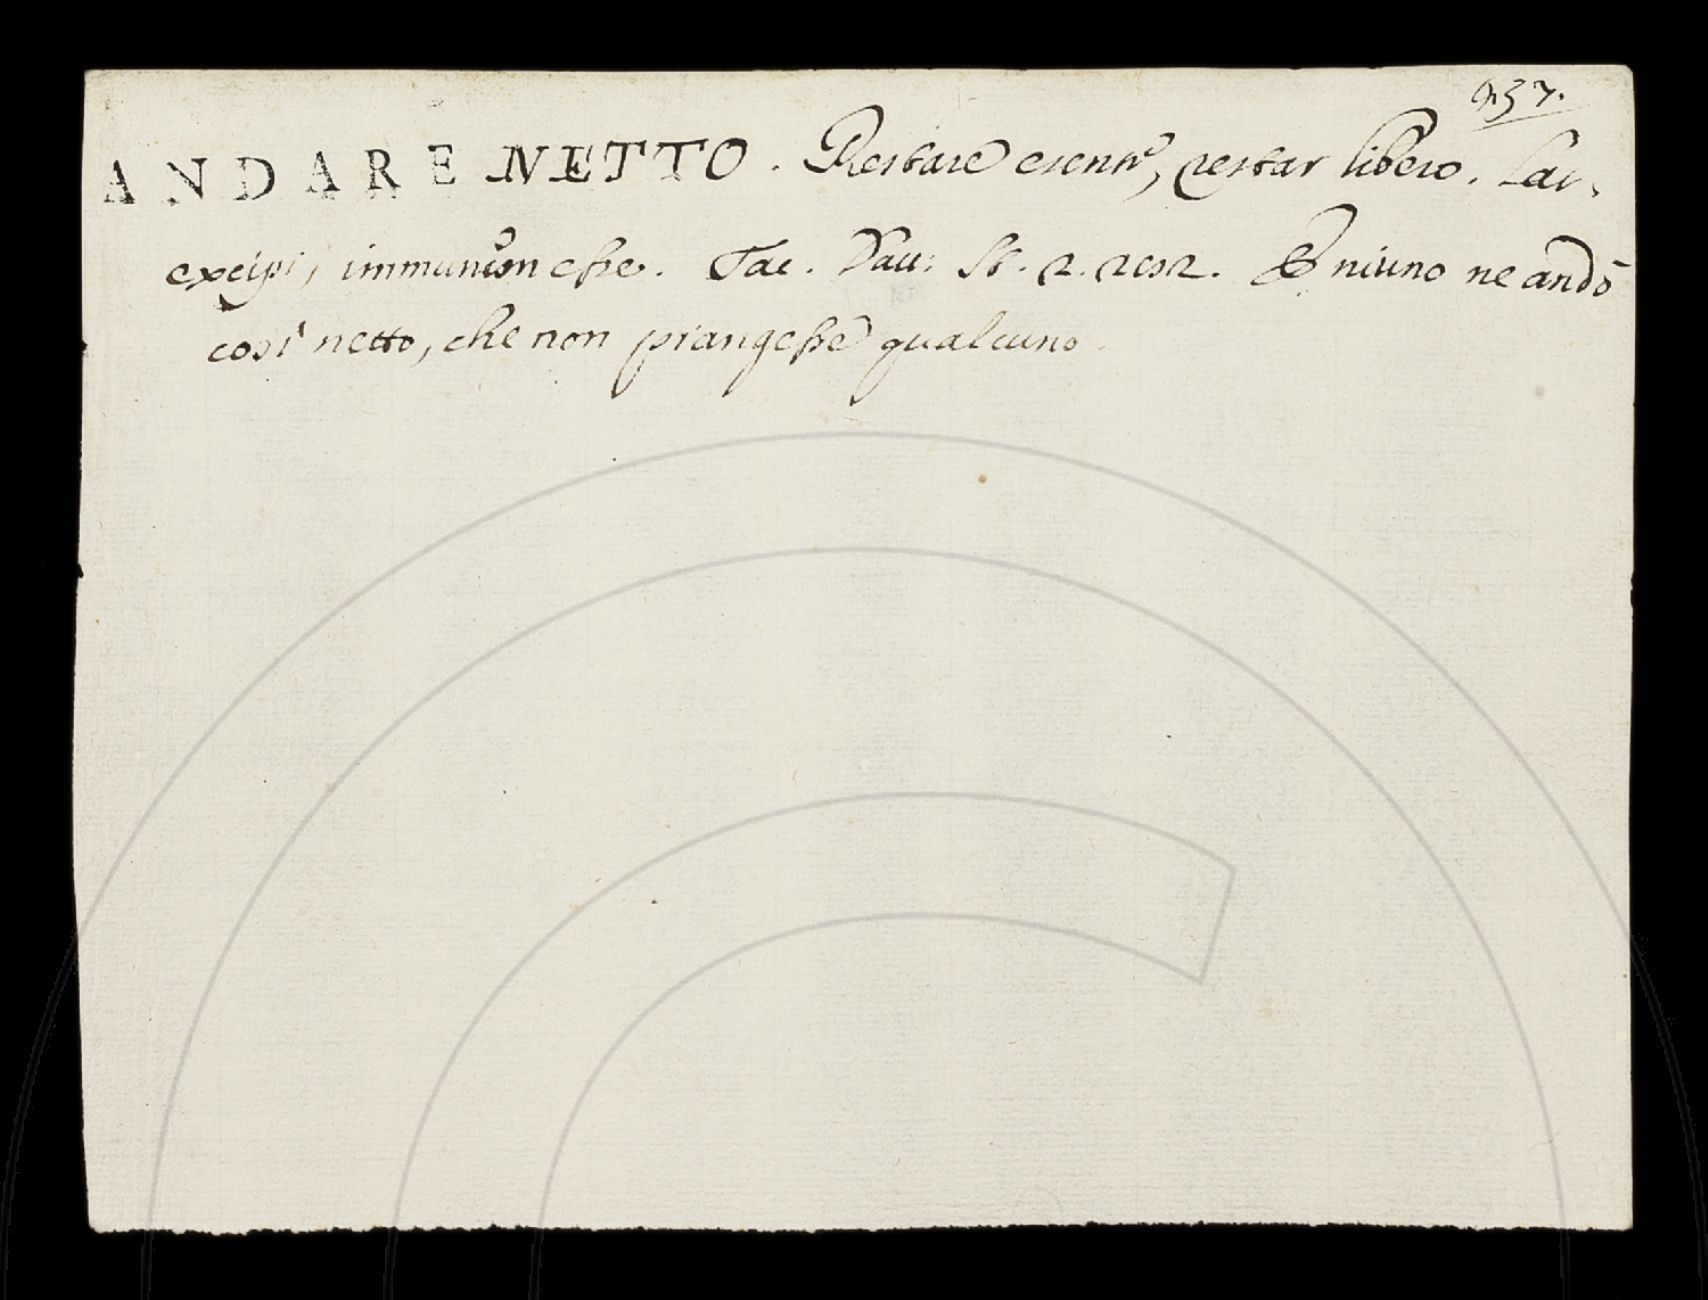 957.
ANDARE NETTO. Restare esente, restar libero. Lat.
excipi, immunem esse. Tac. Dau: St. 2. 292. E niuno ne andò
così netto, che non piangesse qualcuno.